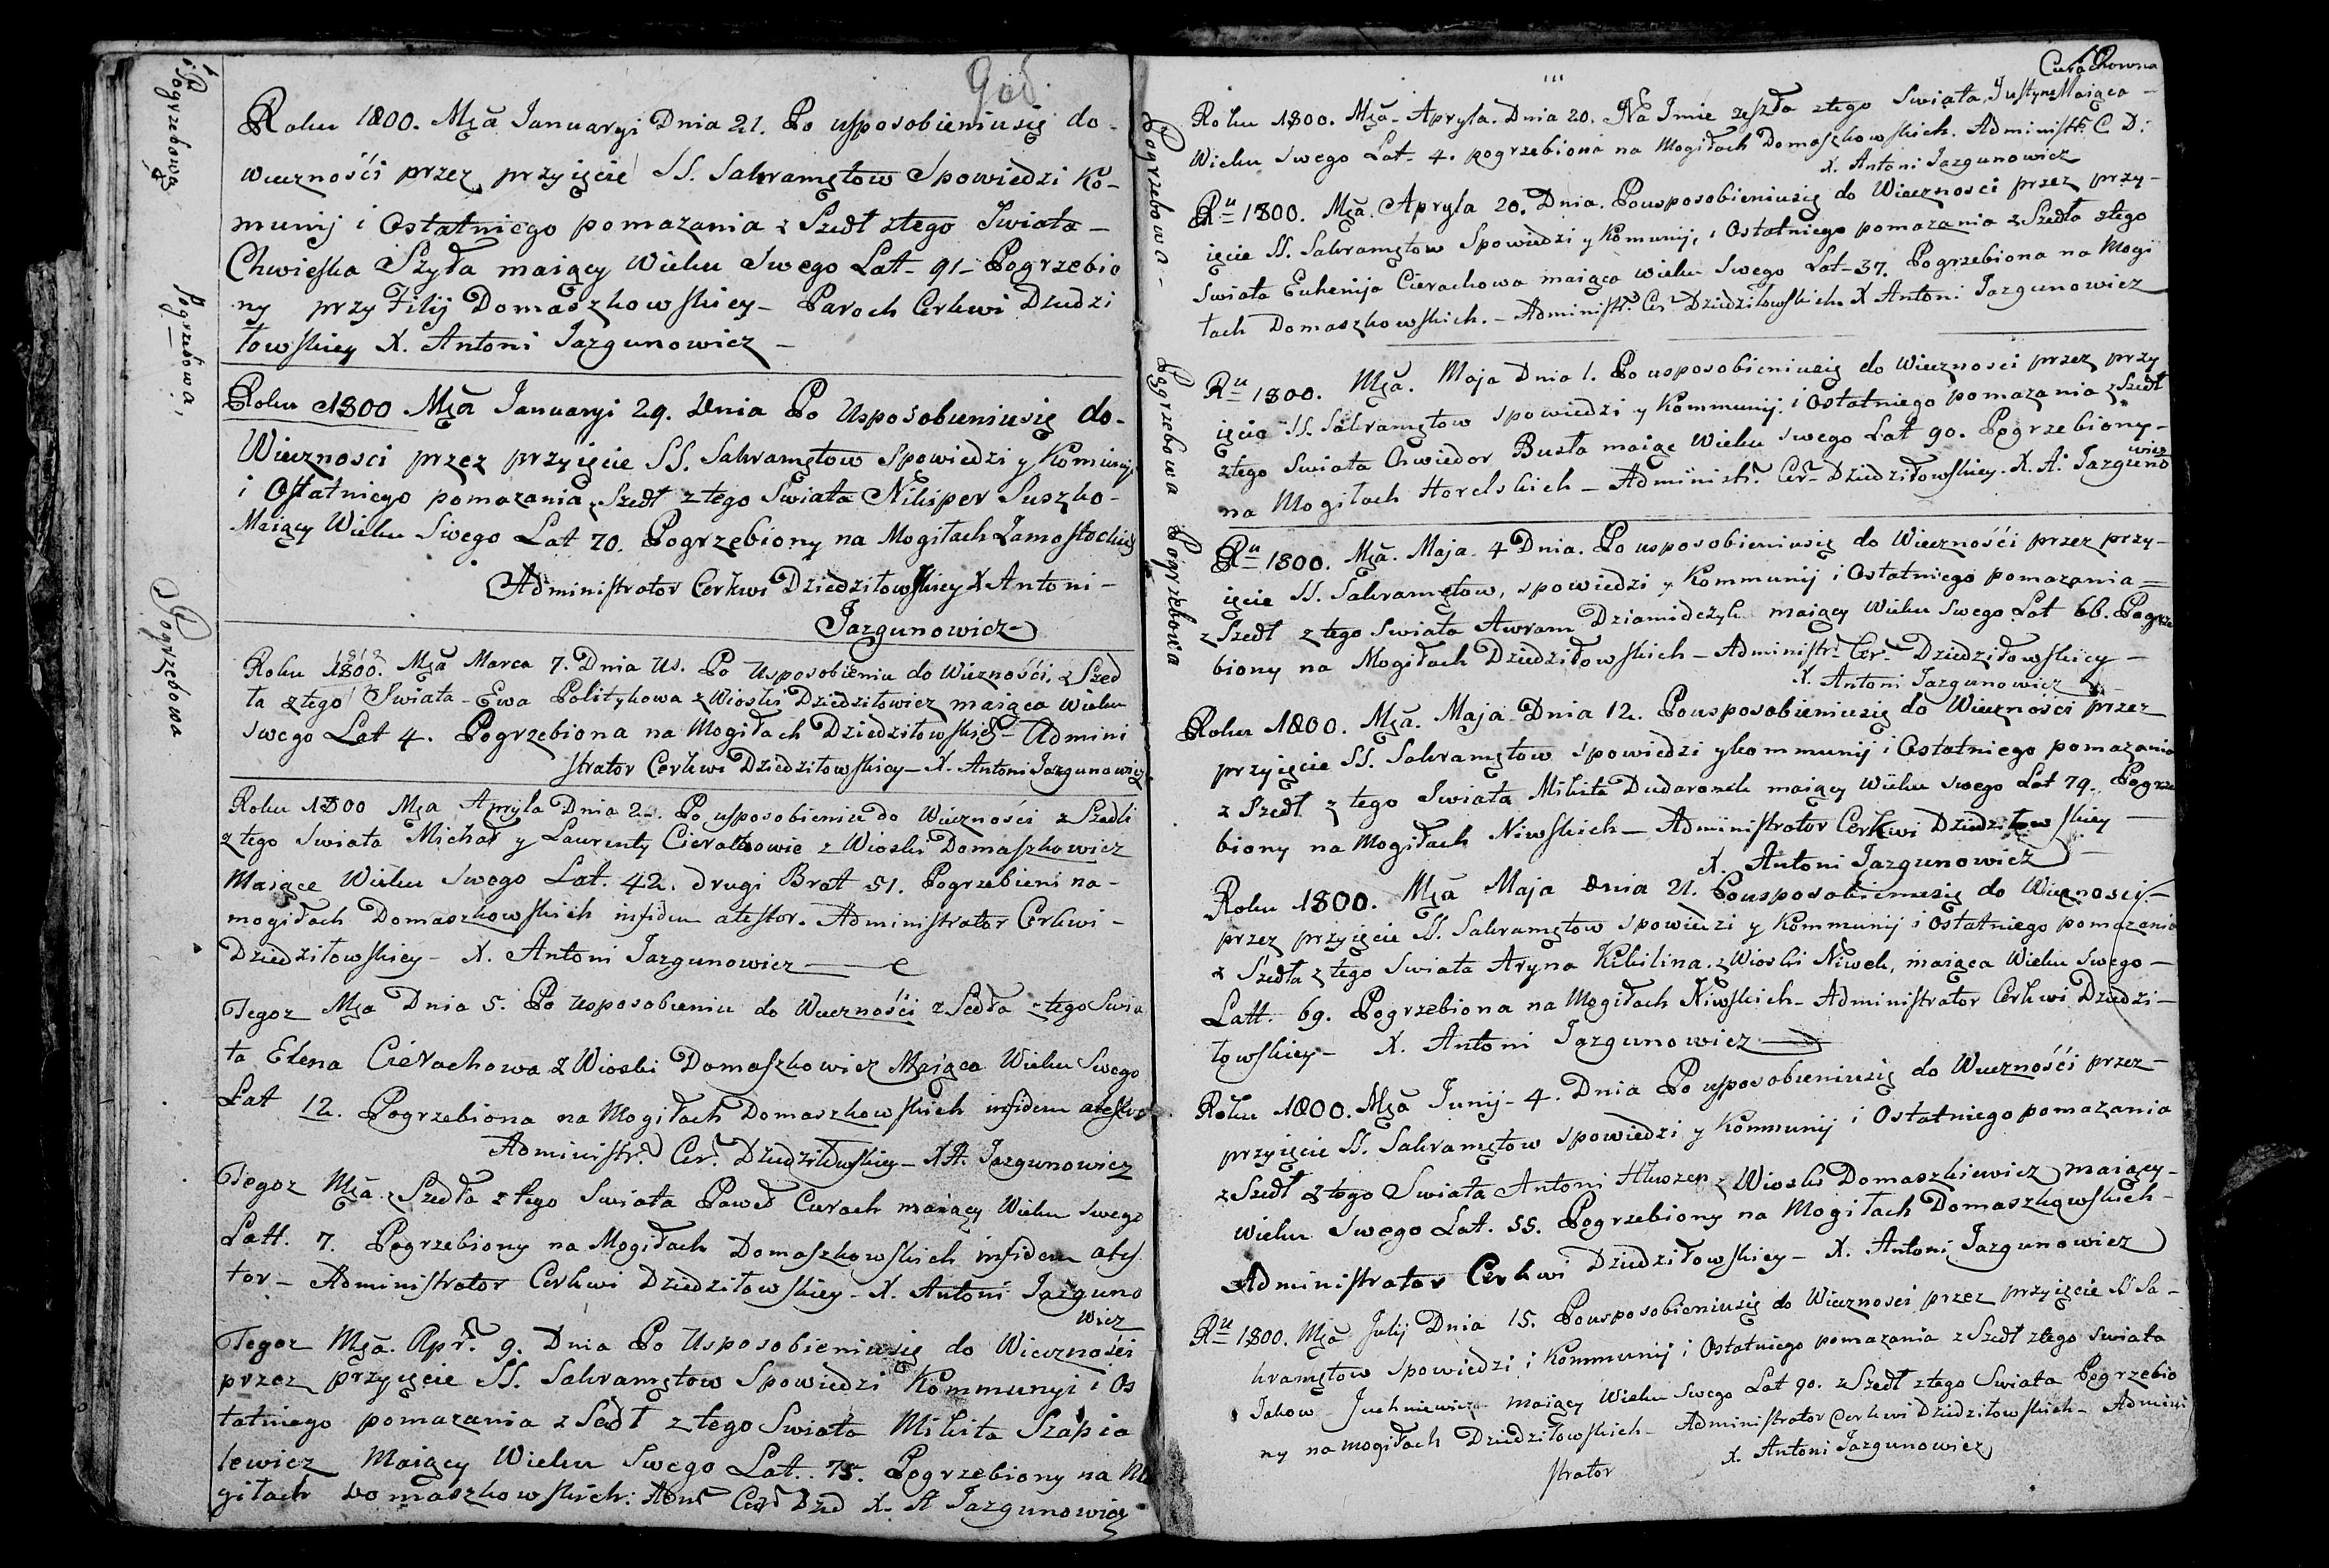 Pogrzebowa
Pogrzebowa,
Pogrzebowa
Roku 1800. Mca Januaryi Dnia 21. Po usposobieniusię do-
wieczności przez przyięcie SS. Sakramętow Spowiedzi Ko-
munij i Ostatniego pomazania z Szedł ztego Swiata-
Chwieśka Szyła maiący Wieku Swego Lat- 91- Pogrzebio
ny przy Filij Domaszkowskiey- Paroch Cerkwi Dziedzi
łowskiey X. Antoni Jazgunowicz-
Roku 1800 Mca Januaryi 29. Dnia Po Usposobieniusię do-
Wieczności przez przyięcie SS. Sakramętow Spowiedzi y Komunij
i Ostatniego pomazania z Szedł ztego Swiata Nikiper Suszko-
Maiący Wieku Swego Lat 70. Pogrzebiony na Mogiłach Zamostockich
Administrator Cerkwi Dziedziłowskiey X Antoni-
Jazgunowicz
Roku 1800. Mca Marca 7. Dnia Us. Po Usposobieniu do Wieczności, z Szed
ła ztego Swiata- Ewa Politykowa z Wioski Dziedziłowicz maiąca Wieku
Swego Lat 4. Pogrzebiona na Mogiłach Dziedziłowskich- Admini
strator Cerkwi Dziedziłowskiey- X. Antoni Jazgunowicz
Roku 1800 Mca Apryla Dnia 2. Po usposobieniu do Wieczności z Szedli
ztego Swiata Michał y Laurenty Cierachowie z Wioski Domaszkowicz
Maiące Wieku Swego Lat. 42. drugi Brat 51. Pogrzebieni na-
mogiłach Domaszkowskich infidem atestor. Administrator Cerkwi-
Dziedziłowskiey- X. Antoni Jazgunowicz
Tegoz Mca Dnia 5. Po Usposobieniu do Wieczności z Sedła ztego Swia
ta Elena Cierachowa z Wioski Domaszkowicz Maiąca Wieku Swego
Lat 12. Pogrzebiona na Mogiłach Domaszkowskich infidem atestor
Administr. Cer. Dziedziłowskiey- X A. Jazgunowicz
Tegoz Mca. z Szedła ztego Swiata Paweł Cierach maiący Wieku Swego
Latt. 7. Pogrzebiony na Mogiłach Domaszkowskich infidem ates
tor- Administrator Cerkwi Dziedziłowskiey- X. Antoni Jazguno
wicz
Tegoz Mca. Apr. 9. Dnia Po Usposobieniusię do Wieczności
przez przyięcie SS. Sakramętow Spowiedzi Kommunyi i Os
tatniego pomazania z Sedł ztego Swiata Mikita Szapia
lewicz Maiący Wieku Swego Lat. 75. Pogrzebiony na Mo
giłach Domaszkowskich: Adm Cer Dzied X. A Jazgunowicz
Pogrzebowa-
Pogrzebowa
Pogrzebowa
Cierachowna
Roku 1800. Mca- Apryla. Dnia 20. Na Imie zeszła ztego Swiata Justyna Maiąca-
Wieku Swego Lat- 4. pogrzebiona na Mogiłach Domaszkowskich. Administr. C. D:
X. Antoni Jazgunowicz
Ru 1800. Mca. Apryla 20. Dnia. Pousposobieniusię do Wieczności przez przy-
ięcie SS. Sakramętow Spowiedzi y Komunij, i Ostatniego pomazania z Szedła ztego
Swiata Euhenija Cierachowa maiąca wieku Swego Lat- 37. Pogrzebiona na Mogi
łach Domaszkowskich.- Administr. Cer. Dziedziłowskich X Antoni Jazgunowicz
Ru 1800. Mca. Maja Dnia 1. Po usposobieniusię do Wieczności przez przy
ięcie SS. Sakramętow Spowiedzi y Kommunij i Ostatniego pomazania z Szedł
ztego Swiata Chwiedor Busła maiąc Wieku Swego Lat 90. Pogrzebiony-
na Mogiłach Horelskich- Administr. Cer- Dziedziłowskiey- X. A. Jazguno
wicz
Ru 1800. Mca. Maja- 4 Dnia. Po usposobieniusię do Wieczności przez przy-
ięcie SS. Sakramętow, spowiedzi y Kommunij i Ostatniego pomazania-
z Szedł ztego Swiata Awram Dziamidczyk maiący Wieku Swego Lat 66. Pogrze
biony na Mogiłach Dziedziłowskich- Administr- Cer- Dziedziłowskiey-
X. Antoni Jazgunowicz
Roku 1800. Mca. Maja Dnia 12. Pousposobieniusię do Wieczności przez
przyięcie SS. Sakramętow spowiedzi y kommunij i Ostatniego pomazania
z Szedł z tego Swiata Mikita Dudaronek maiący Wieku Swego Lat 79. Pogrze
biony na Mogiłach Niwskich- Administrator Cerkwi Dziedziłowskiey-
X. Antoni Jazgunowicz
Roku 1800. Mca Maja Dnia 21. Pousposobieniusię do Wieczności-
przez przyięcie SS. Sakramętow spowiedzi y Kommunij i Ostatniego pomazania
z Szedła ztego Swiata Aryna Kikilina. z Wioski Niwek, maiąca Wieku Swego-
Latt. 69. Pogrzebiona na Mogiłach Niwskich- Administrator Cerkwi Dziedzi-
łowskiey- X. Antoni Jazgunowicz
Roku 1800. Mca Junij- 4. Dnia Po usposobieniusię do Wieczności przez-
przyięcie SS. Sakramętow spowiedzi y Kommunij i Ostatniego pomazania
z Szedł ztego Swiata Antoni z Wioski Domaszkiewicz maiący-
wieku Swego Lat. 55. Pogrzebiony na Mogiłach Domaszkowskich-
Administrator Cerkwi Dziedziłowskiey- X. Antoni Jazgunowicz
Ru 1800. Mca Julij Dnia 15. Pousposobieniusię do Wieczności przez przyięcie SS Sa-
kramętow spowiedzi i Kommunij i Ostatniego pomazania z Szedł ztego Swiata
Jakow Juchniewicz maiący Wieku Swego Lat 90. z Szedł ztego Swiata Pogrzebio
ny na mogiłach Dziedziłowskich- Administrator Cerkwi Dziedziłowskich- Admini
strator X. Antoni Jazgunowicz